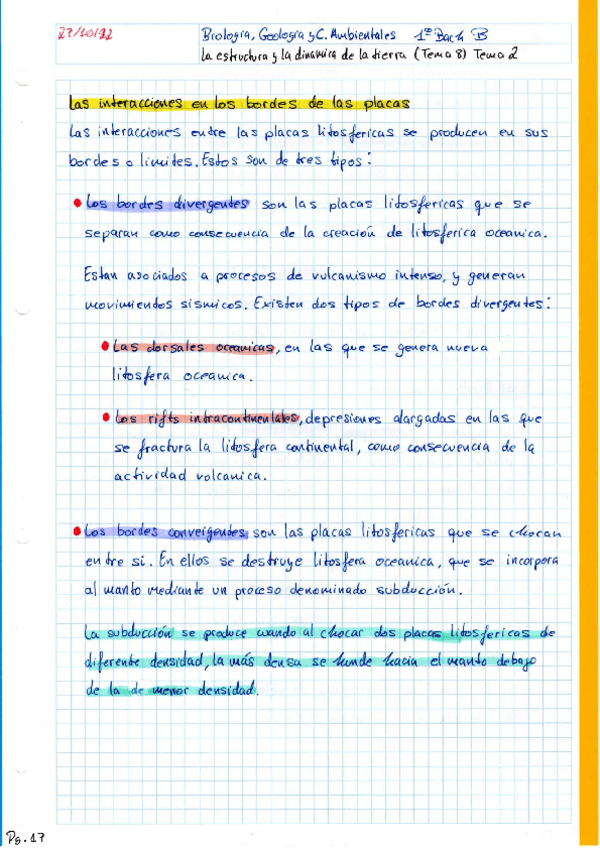 27/10/22
Biología, Geología y C. Ambientales 1º Bach B
La estructura y la dinamica de la tierra (Tema 8) Tema 2
Las interacciones en los bordes de las placas
Las interacciones entre las placas litosfericas se producen en sus
bordes o limites. Estos son de tres tipos:
Los bordes divergentes son las placas litosfericas que se
separan como consecuencia de la creación de litosferica oceanica.
Estan asociados a procesos de vulcanismo intenso, y generan
movimientos sismicos. Existen dos tipos de bordes divergentes:
Las dorsales oceanicas, en las que se genera nueva
litosfera oceanica.
Los rifts intracontinentales, depresiones alargadas en las que
se fractura la litosfera continental, como consecuencia de la
actividad volcanica.
Los bordes convergentes son las placas litosfericas que se chocan
entre si. En ellos se destruye litosfera oceanica, que se incorpora
al manto mediante un proceso denominado subducción.
La subducción se produce cuando al chocar dos placas litosfericas de
diferente densidad, la más densa se hunde hacia el manto debajo
de la de menor densidad.
Pg. 17